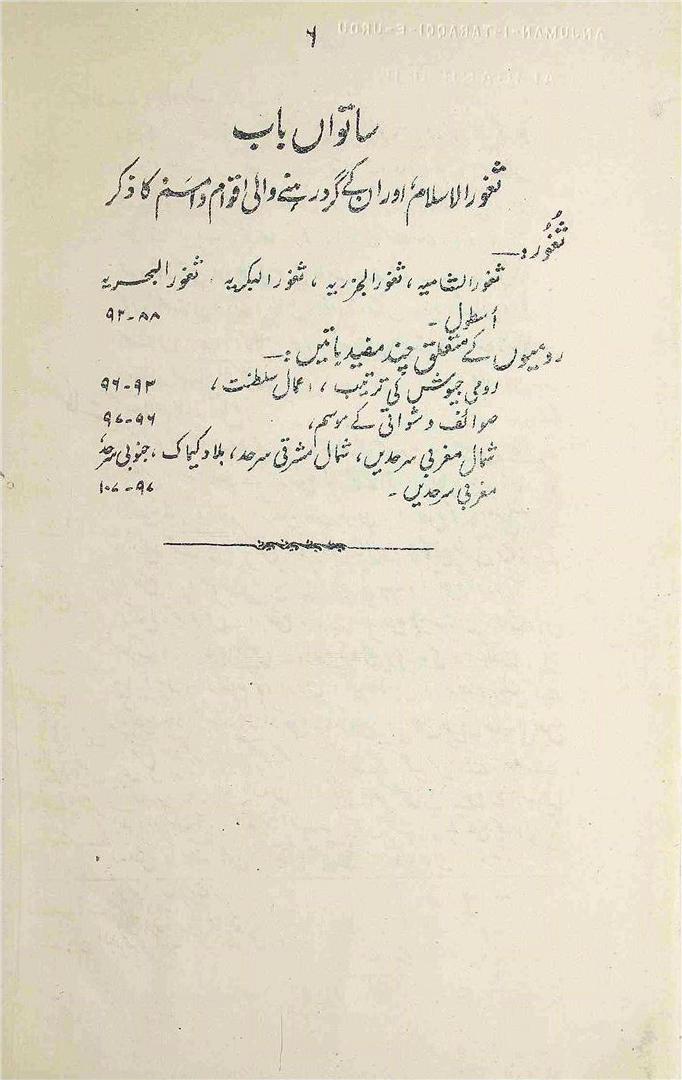 ۶
ساتواں باب
ثغور الاسلام، اور ان کے گرد رہنے والی اقوام و امم کا ذکر
ثُغُور :—
ثغور الشامیہ، ثغور الجزریہ، ثغور البکریہ، ثغور البحریہ
اُسطول۔ ۸۸-۹۳
رومیوں کے متعلق چند مفید باتیں :—
رومی جیوش کی ترتیب، اعمال سلطنت، ۹۳-۹۶
صوائف و شواتی کے موسم، ۹۶-۹۷
شمال مغربی سرحدیں، شمال مشرقی سرحد، بلاد کیماک، جنوبی سرحد
مغربی سرحدیں۔ ۹۷-۱۰۷